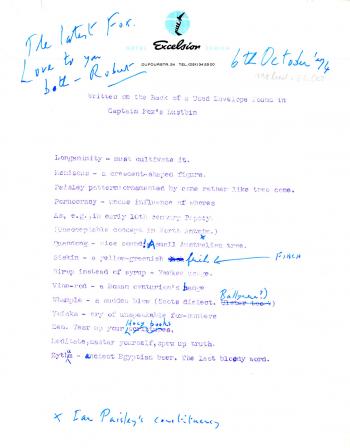 The latest Fox.
Love to you
both - Robert
HOTEL Excelsior ZÜRICH
DUFOURSTR. 24 TEL. (051) 34 25 00
6th October '74
Written on the Back of a Used Envelope Found in
Captain Fox's Dustbin
Longanimity - must cultivate it.
Meniscus - a crescent-shaped figure.
Paisley pattern: ornamented by cone rather like tree cone.
Pornocracy - undue influence of whores
As, e.g., in early 10th century Papacy.
(Unacceptable concept in North Antrim.) x
Quandong - nice sound! A small Australian tree.
Siskin - a yellow-greenish finch. FINCH
Sirup instead of syrup - Yankee usage.
Vine-rod - a Roman centurion's badge
Whample - a sudden blow (Scots dialect. Ballymena?)
Yoicks - cry of unspeakable fox-hunters
Zen. Tear up your Holy books
Meditate, master yourself, spew up truth.
Zythum - ancient Egyptian beer. The last bloody word.
x Ian Paisley's constituency